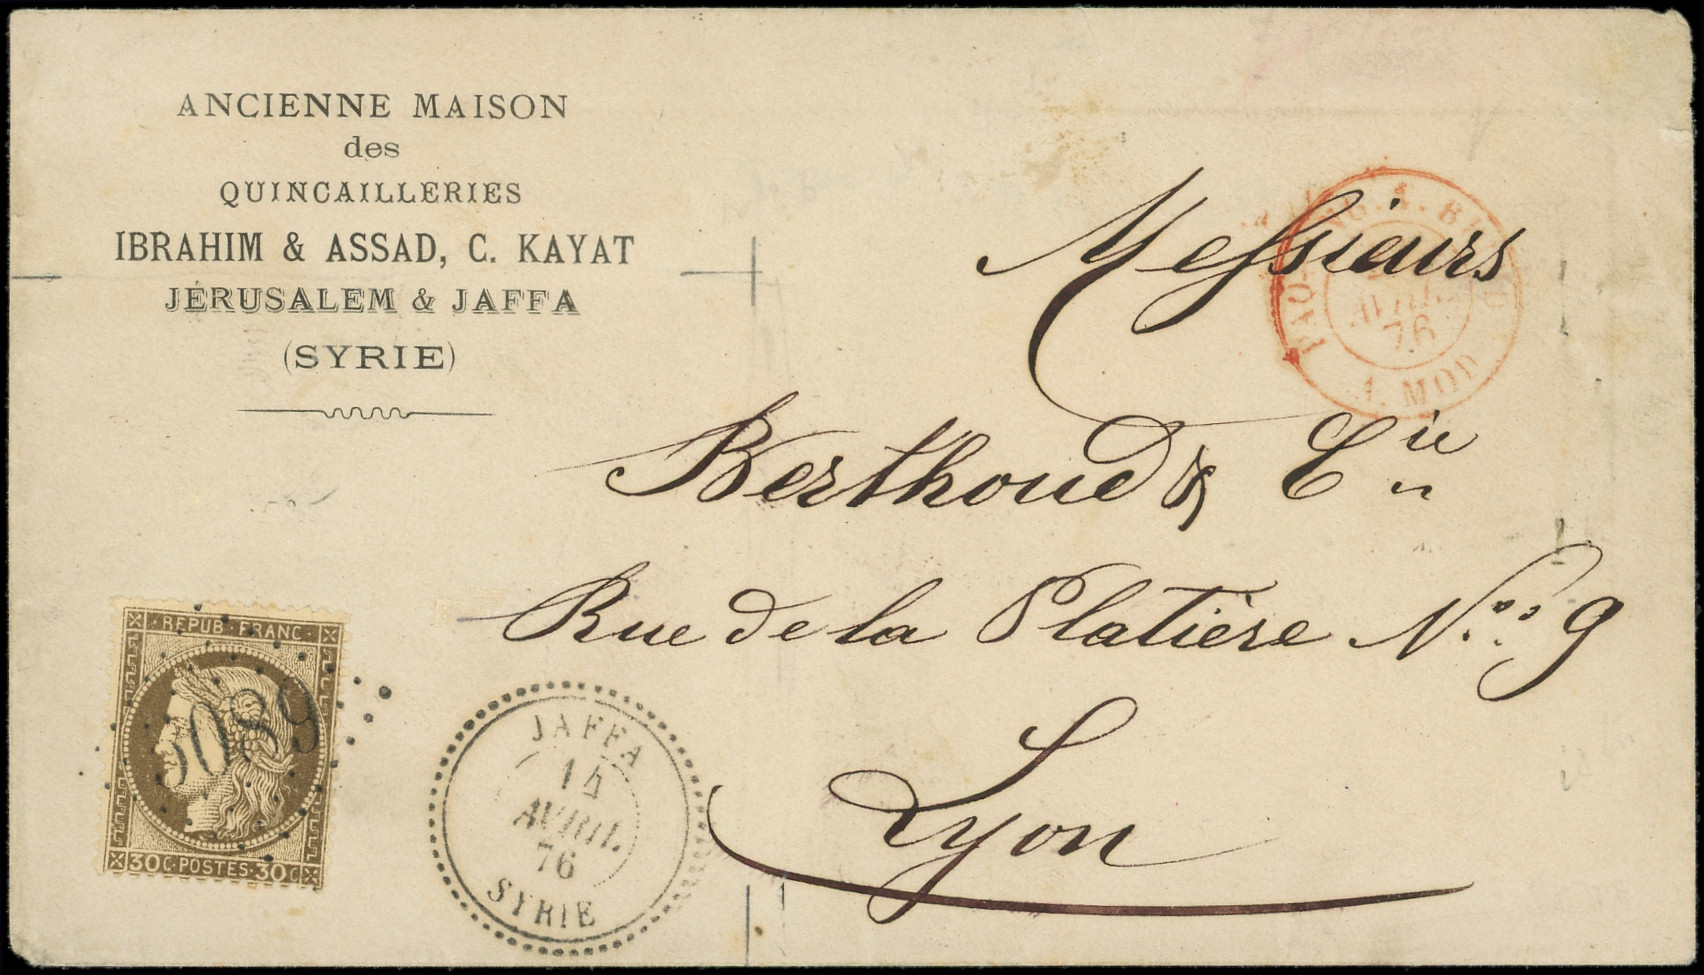 ANCIENNE MAISON
des
QUINCAILLERIES
IBRAHIM & ASSAD, C. KAYAT
JÉRUSALEM & JAFFA
(SYRIE)
Messieurs
Berthoud & Cie
Rue de la Platière Nos 9
Lyon
REPUB·FRANC·
30C·POSTES·30C
5089
JAFFA
14
AVRIL
76
SYRIE
AVRIL
76
A. MOD